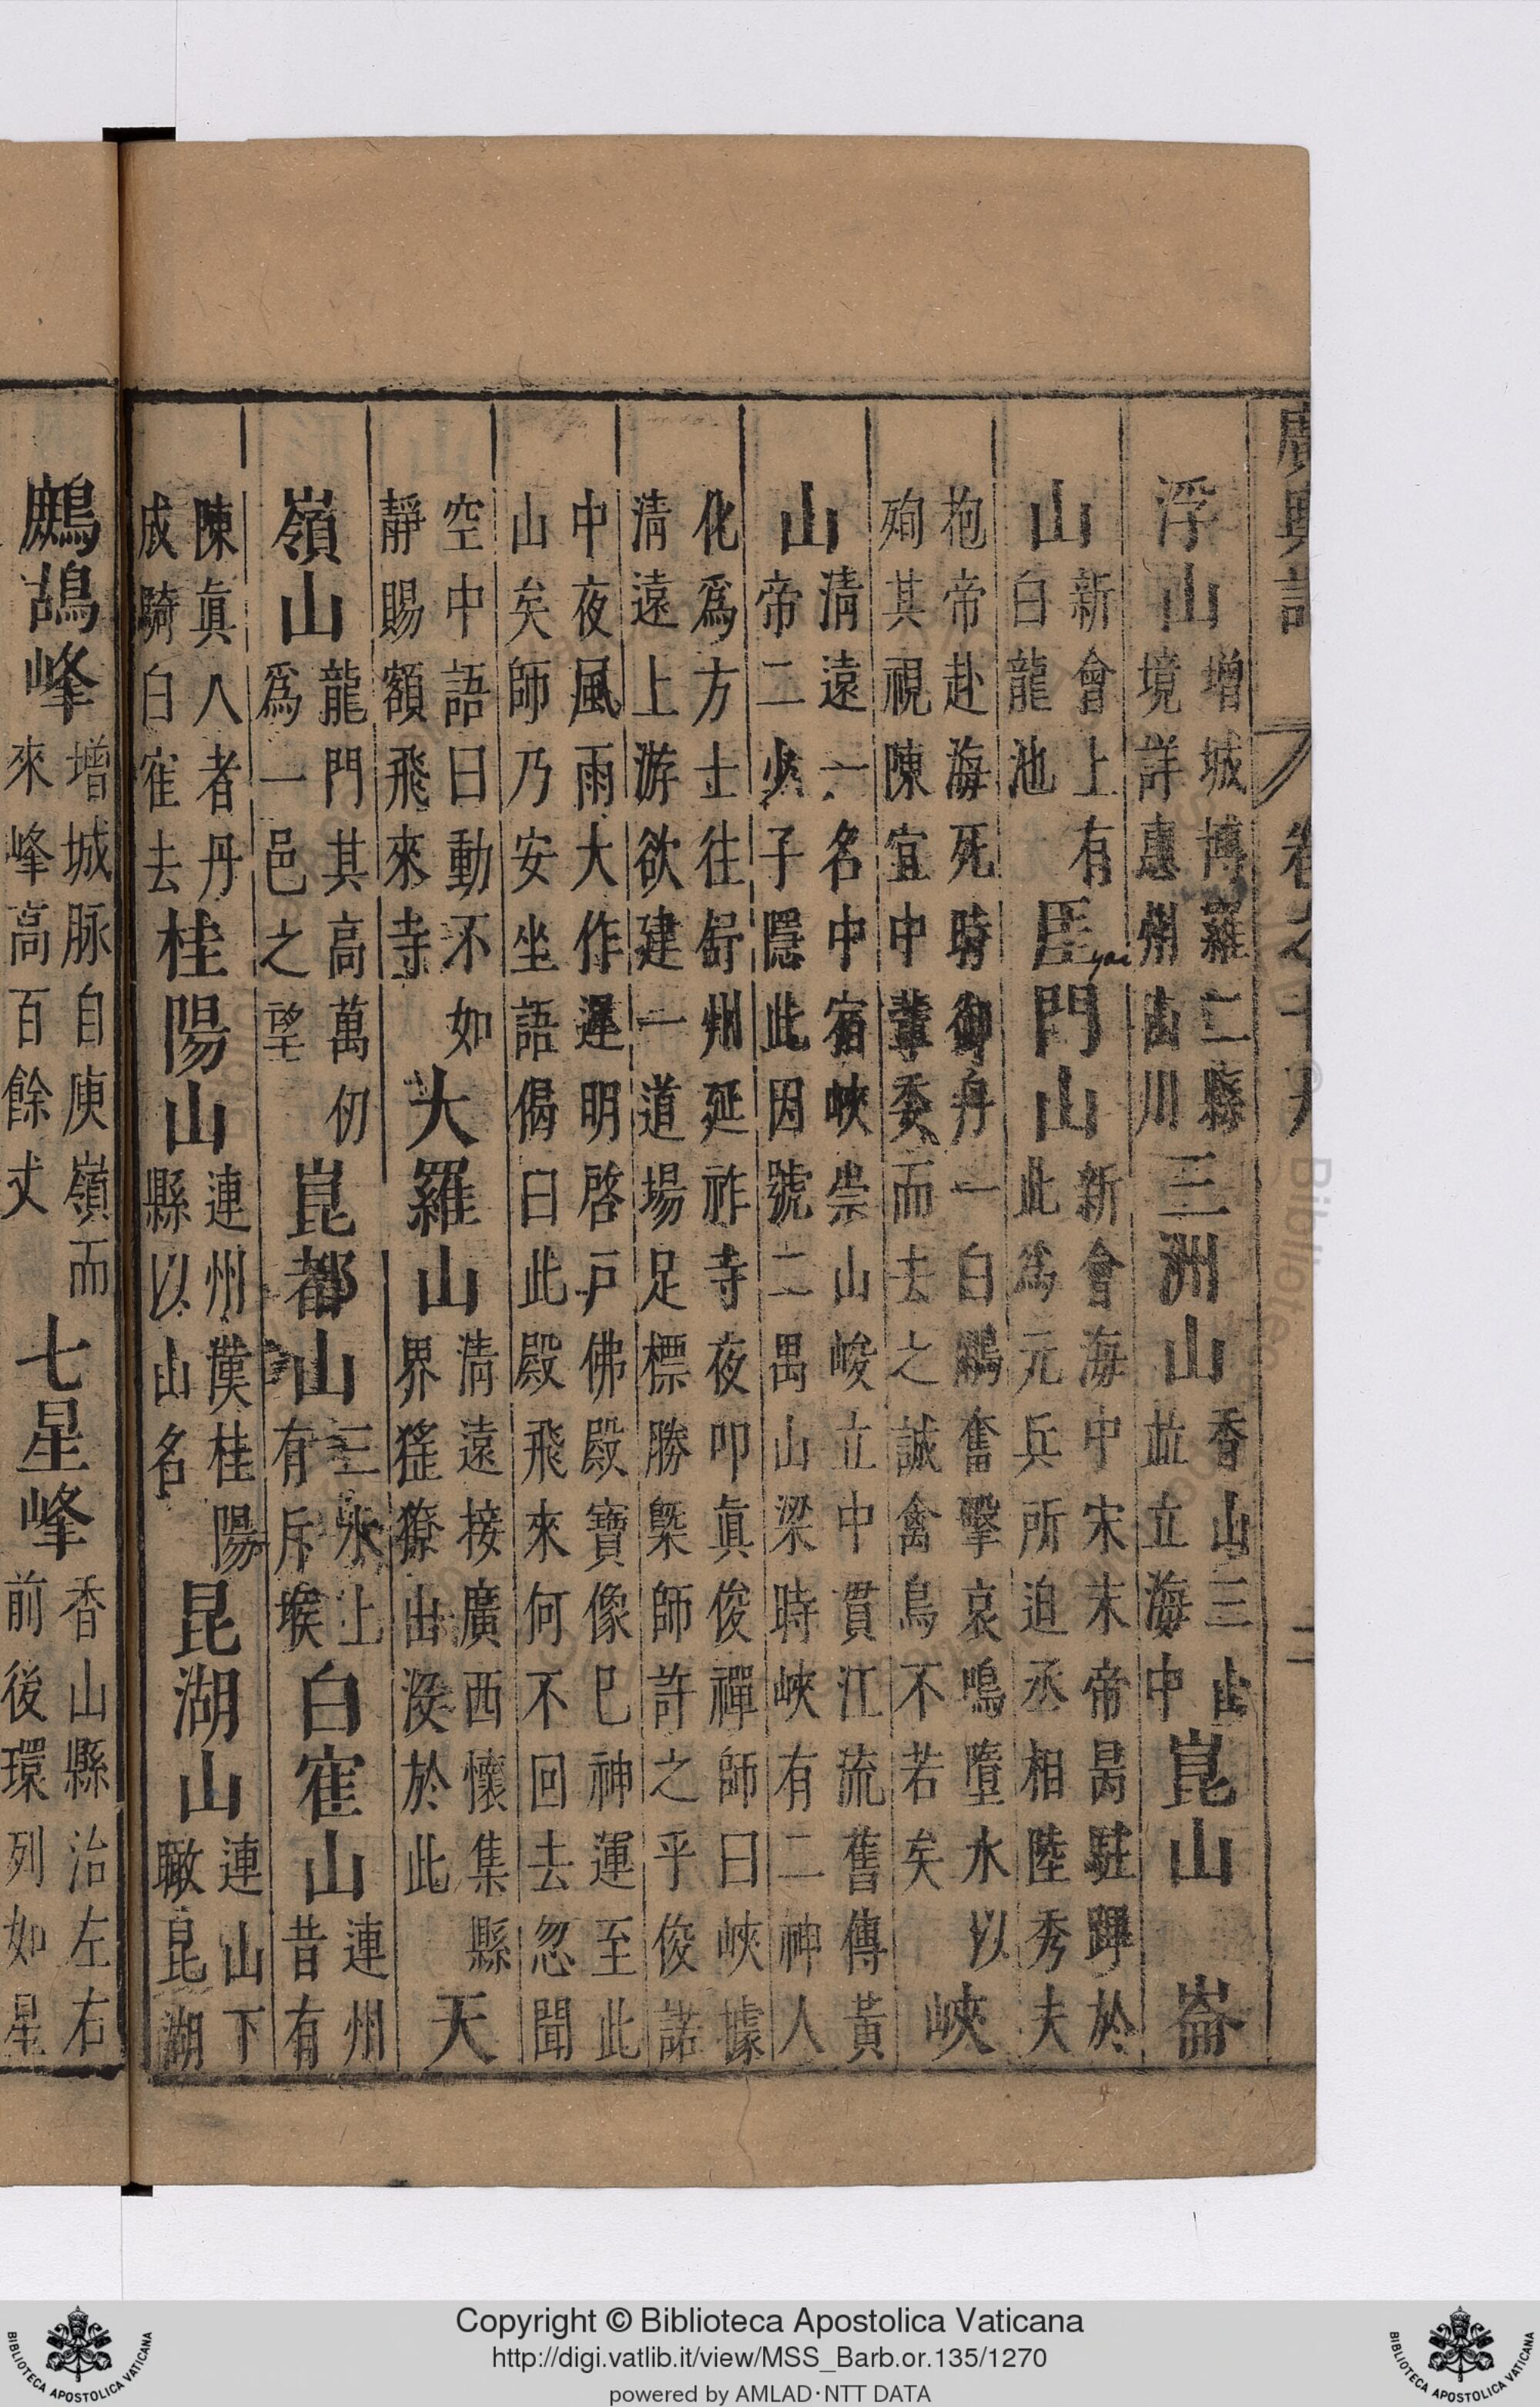 廣輿記 卷之十九 二
浮山 增城博羅二縣境詳惠州山川 三洲山 香山三山並立海中 崑山 崙
山 新會上有白龍池 厓門山 新會海中宋末帝昺駐蹕於此爲元兵所迫丞相陸秀夫
yai
抱帝赴海死時御舟一白鷳奮擊哀鳴墮水以殉其視陳宜中輩委而去之誠禽鳥不若矣 峽
山 清遠一名中宿峽崇山峻立中貫江流舊傳黃帝二少子隱此因號二禺山梁時峽有二神人
化爲方士往舒州延祚寺夜叩眞俊禪師曰峽據清遠上游欲建一道塲足標勝槩師許之乎俊諾
中夜風雨大作遲明啓戸佛殿寶像已神運至此山矣師乃安坐語偈曰此殿飛來何不回去忽聞
空中語曰動不如靜賜額飛來寺 大羅山 清遠接廣西懷集縣界猺獠出沒於此 天
嶺山 龍門其高萬仞爲一邑之望 崑都山 三水上有斥堠 白隺山 連州昔有
陳眞人者丹成騎白隺去 桂陽山 連州漢桂陽縣以山名 昆湖山 連山下瞰昆湖
鷓鴣峰 增城脉自庾嶺而來峰高百餘丈 七星峰 香山縣治左右前後環列如星
Copyright © Biblioteca Apostolica Vaticana
http://digi.vatlib.it/view/MSS_Barb.or.135/1270
powered by AMLAD·NTT DATA
BIBLIOTECA APOSTOLICA VATICANA
BIBLIOTECA APOSTOLICA VATICANA